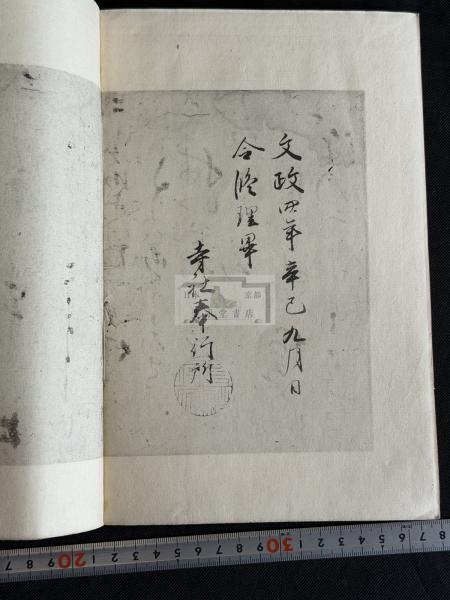 文政四年辛巳九月日
令修理畢
寺社奉行所
京都
堂書店
8 7 6 5 4 3 2 1 30 9 8 7 6 5 4 3 2 1 20 9 8 7